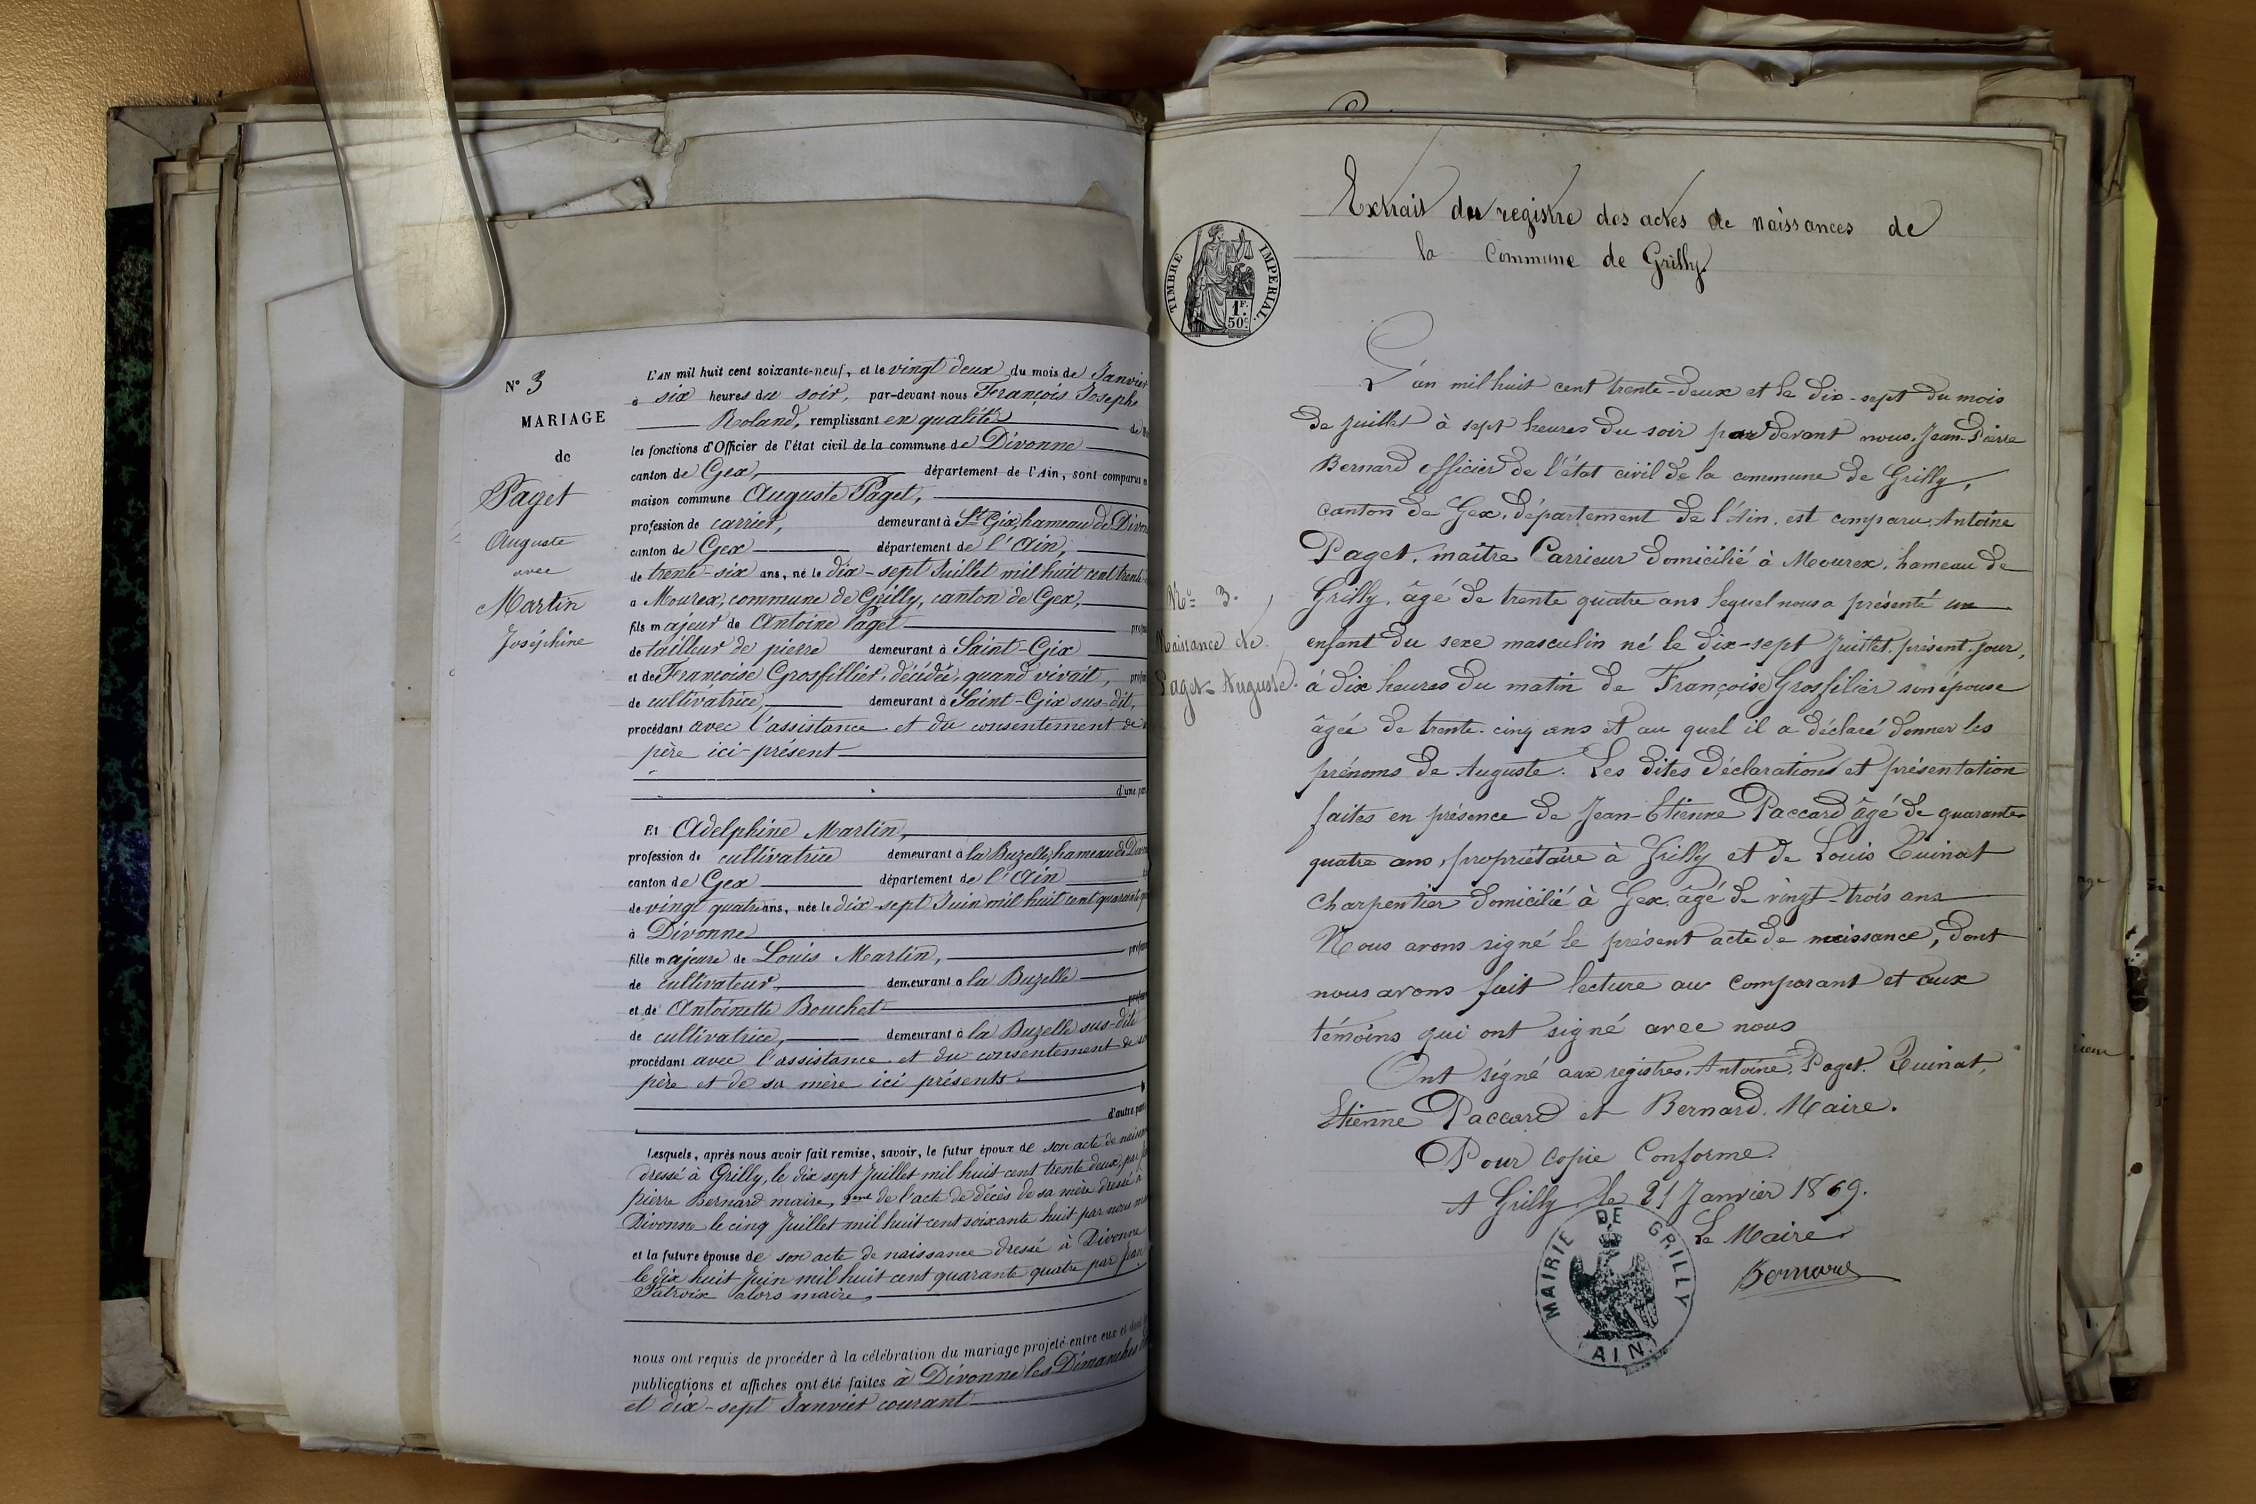 N° 3
MARIAGE
de
Paget
Auguste
avec
Martin
Joséphine
L'AN mil huit cent soixante-neuf, et le vingt deux du mois de Janvier
à six heures du soir, par-devant nous François Joseph
Roland, remplissant en qualité de
les fonctions d'Officier de l'état civil de la commune de Divonne
canton de Gex, département de l'Ain, sont comparus
maison commune Auguste Paget,
profession de carrier, demeurant à St Gix, hameau de
canton de Gex département de l'Ain,
de trente-six ans, né le dix-sept Juillet mil huit cent trente
à Mourex, commune de Grilly, canton de Gex,
fils majeur de Antoine Paget
de tailleur de pierre demeurant à Saint-Gix
et de Françoise Grosfillier, décédée, quand vivait,
de cultivatrice, demeurant à Saint-Gix sus-dit,
procédant avec l'assistance et du consentement de
père ici-présent
d'une
Et Adelphine Martin,
profession de cultivatrice demeurant à la Buzelle, hameau de
canton de Gex département de l'Ain
de vingt quatre ans, née le dix-sept Juin mil huit cent quarante
à Divonne
fille majeure de Louis Martin,
de cultivateur, demeurant à la Buzelle
et de Antoinette Bouchet
de cultivatrice, demeurant à la Buzelle sus-dite
procédant avec l'assistance et du consentement de
père et de sa mère ici présents.
d'autre part
Lesquels, après nous avoir fait remise, savoir, le futur époux de son acte de
dressé à Grilly, le dix sept Juillet mil huit cent trente deux, par
pierre Bernard maire, de l'acte de décès de sa mère dressé à
Divonne le cinq Juillet mil huit cent soixante huit par nous
et la future épouse de son acte de naissance dressé à Divonne
le dix huit Juin mil huit cent quarante quatre par
Patroix alors maire,
nous ont requis de procéder à la célébration du mariage projeté entre eux et
publications et affiches ont été faites à Divonne les Dimanches
et dix-sept Janvier courant
TIMBRE IMPERIAL.
1F.
50c
Extrait du registre des actes de naissances de
la Commune de Grilly.
N° 3.
Naissance de
Paget Auguste.
L'an mil huit cent trente-deux et le dix-sept du mois
de juillet à sept heures du soir par devant nous, Jean-Pierre
Bernard officier de l'état civil de la commune de Grilly,
canton de Gex, département de l'Ain, est comparu Antoine
Paget, maître Carrieur domicilié à Mourex, hameau de
Grilly, âgé de trente quatre ans lequel nous a présenté un
enfant du sexe masculin né le dix-sept Juillet, présent jour,
à dix heures du matin de Françoise Grosfilier son épouse
âgée de trente-cinq ans et au quel il a déclaré donner les
prénoms de Auguste. Les dites déclarations et présentation
faites en présence de Jean-Etienne Paccard âgé de quarante
quatre ans, propriétaire à Grilly et de Louis Tuinat
charpentier domicilié à Gex, âgé de vingt-trois ans
Nous avons signé le présent acte de naissance, dont
nous avons fait lecture au comparant et aux
témoins qui ont signé avec nous
Ont signé aux registres, Antoine, Paget. Tuinat,
Etienne Paccard et Bernard, Maire.
Pour copie Conforme.
A Grilly le 21 Janvier 1869.
Le Maire
Bernard
MAIRIE DE GRILLY
AIN